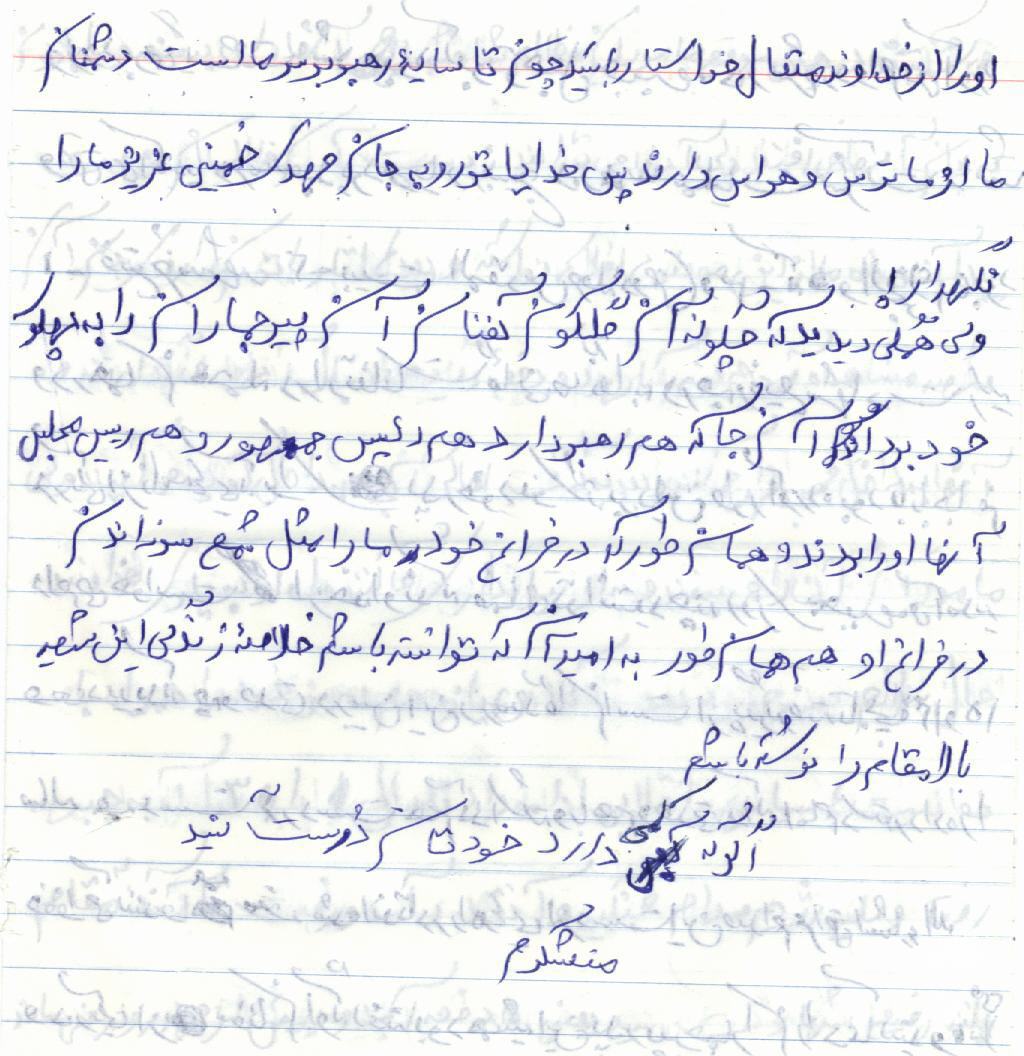 او را از خداوند متعال خواستار باشید چون تا سایهٔ رهبر بر سر ما است دشمنان
ما از ما ترس و هراس دارند پس خدایا تو رو به جان مهدی خمینی عزیز ما را
نگهدار
ولی همگی دیدید که چگونه آن گلگون کفنان آن پیر جماران را به پهلوی
خود برد آن جا که هم رهبر دارد هم رئیس جمهور و هم ریس مجلس
آنها او را بردند و همان طور که در فراغ خود ما را مثل شمع سوزاندن
در فراغ او هم همان طور به امید آن که توانسته باشم خلاصهٔ زندگی این شهید
بالا مقام را نوشته باشم
اگر که کمی دارد خودتان درست کنید
متشکرم